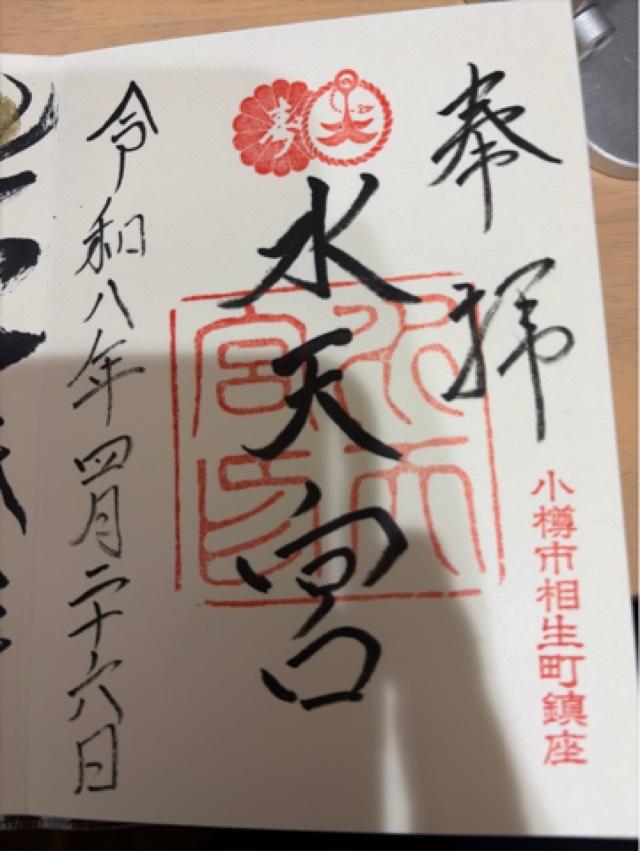 奉拝
小樽市相生町鎮座
水天宮
水天宮印
令和八年四月二十六日